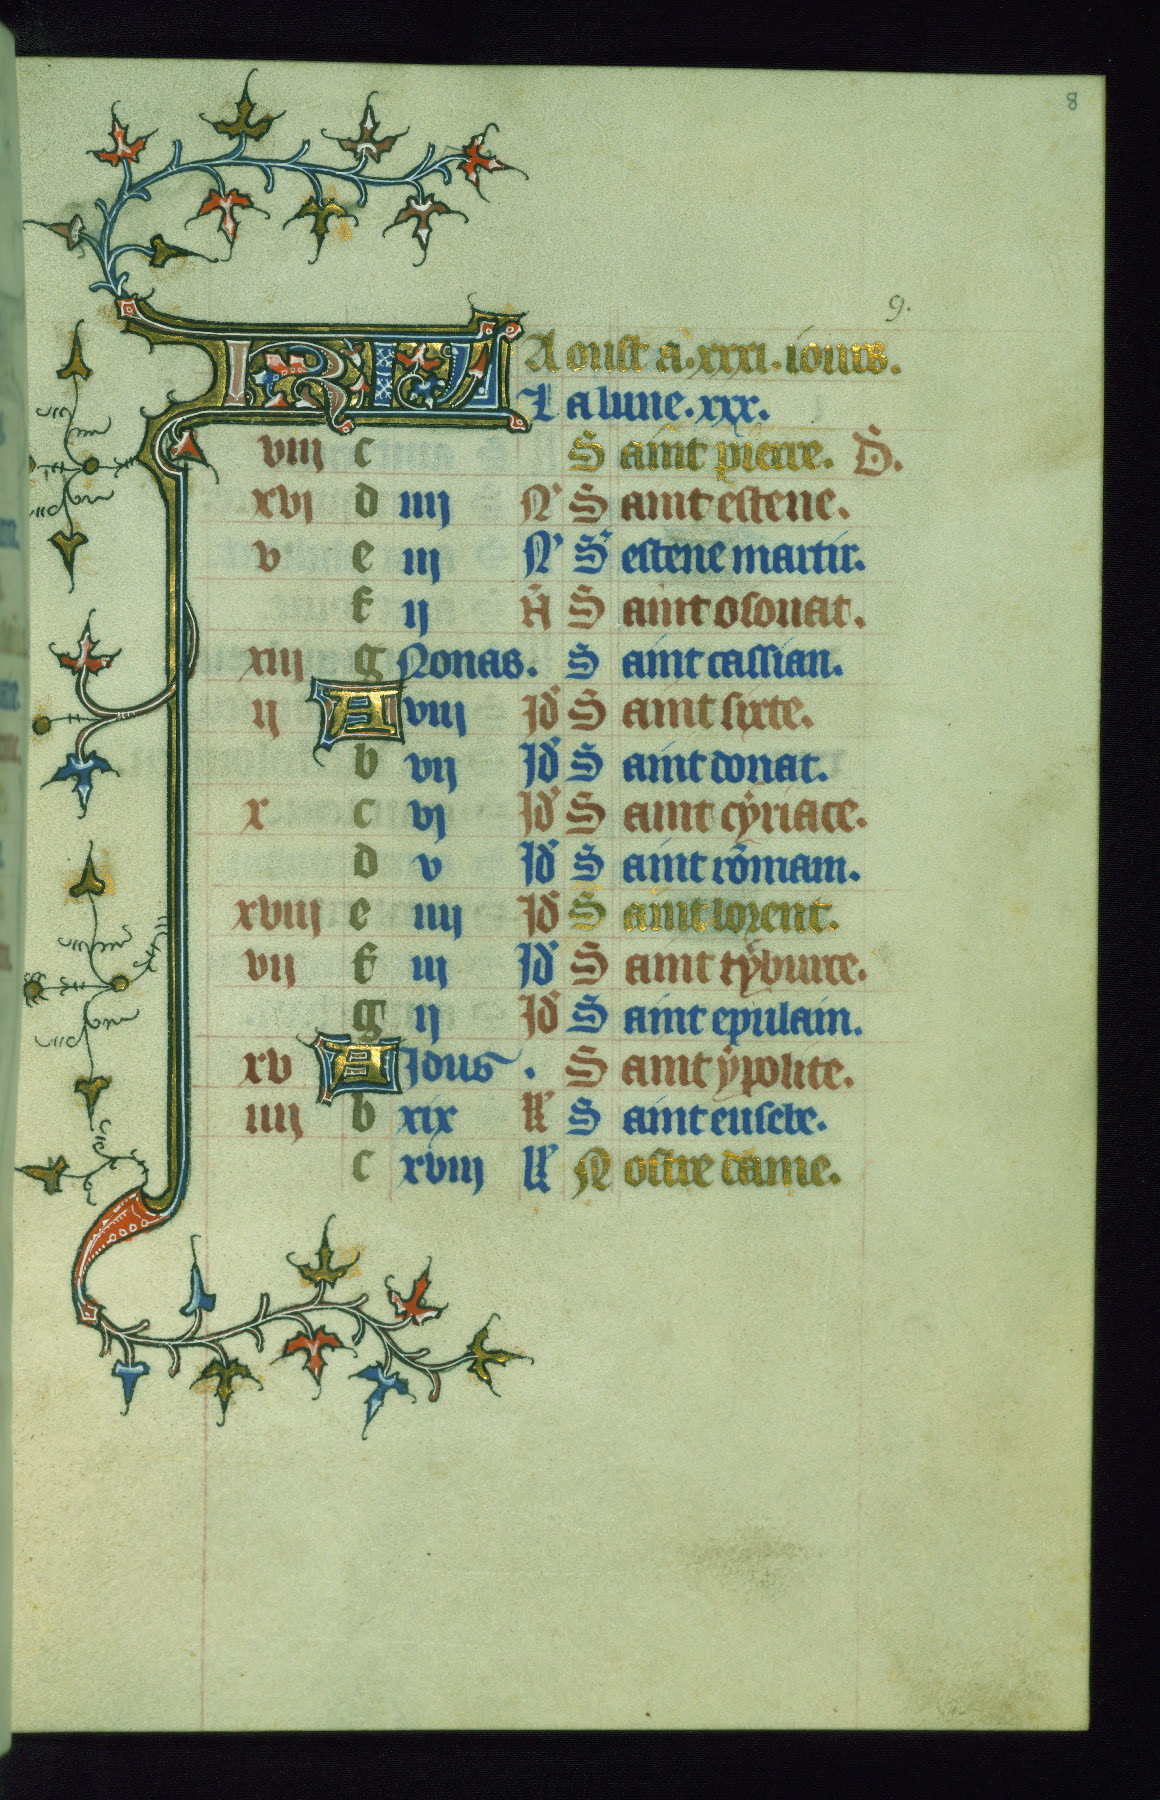 8
9.
KL Aoust a.xxxi.iours.
La lune.xxx.
viii c Saint pierre. D.
xvj d iiij N' Saint estene.
v e iij N' S' estene martir.
f ij N Saint osouat.
xiij g Nonas. Saint cassian.
ij A viij Id' Saint sixte.
b vij Id' Saint donat.
x c vj Id' Saint cyriace.
d v Id' Saint romam.
xviij e iiij Id' Saint lorent.
vij f iij Id' Saint tyburce.
g ij Id' Saint epulain.
xv A Idus. Saint ypolite.
iiij b xix kl' Saint eusebe.
c xviij kl' Nostre dame.